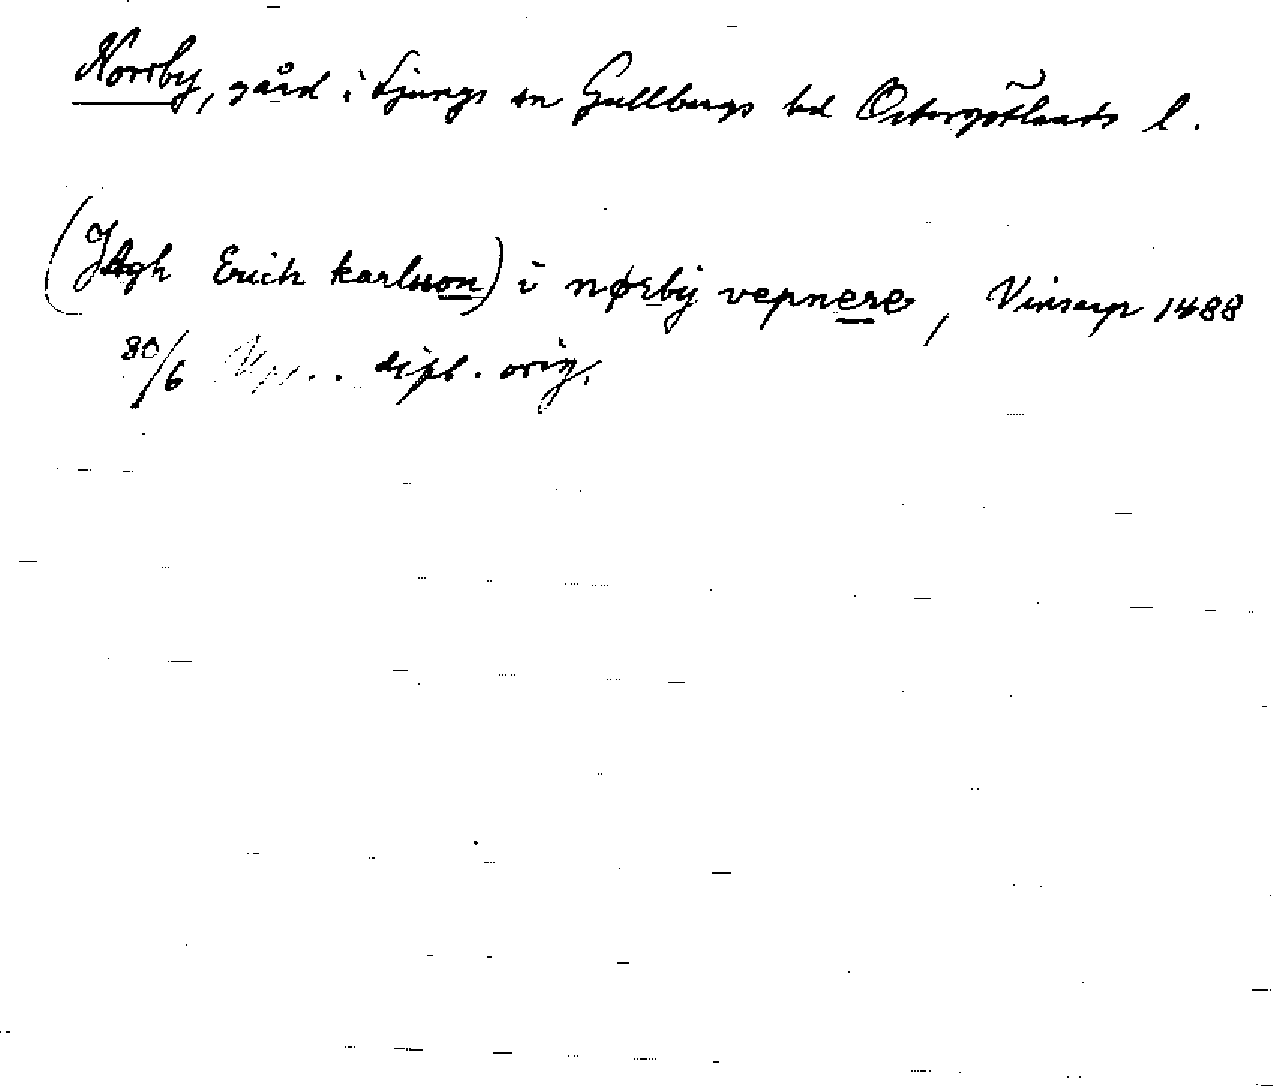 Norrby, gård i Ljungs sn Gullbergs hd Östergötlands l.
(Jagh Erich karlsson) i nørby vepnere, Vinserp 1488
30/6 dipl. orig.